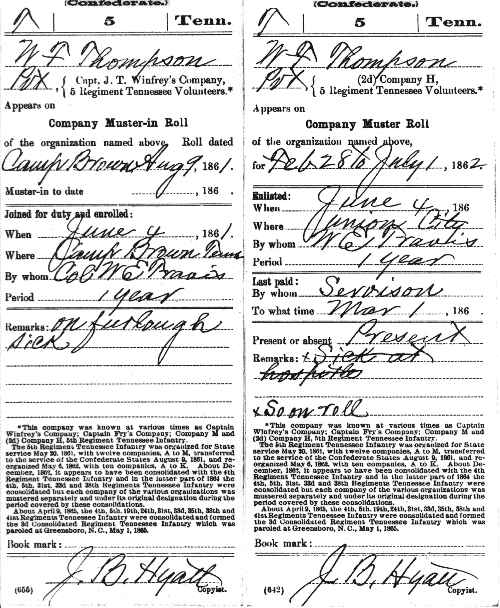 (Confederate.)
T | 5 | Tenn.
W F Thompson
Pvt, { Capt. J. T. Winfrey's Company,
5 Regiment Tennessee Volunteers.*
Appears on
Company Muster-in Roll
of the organization named above. Roll dated
Camp Brown Aug 9, 1861.
Muster-in to date , 186 .
Joined for duty and enrolled:
When June 4 , 1861
Where Camp Brown Tenn
By whom Col W E Travis
Period 1 year
Remarks: on furlough
sick
*This company was known at various times as Captain
Winfrey's Company; Captain Fry's Company; Company M and
(2d) Company H, 5th Regiment Tennessee Infantry.
The 5th Regiment Tennessee Infantry was organized for State
service May 20, 1861, with twelve companies, A to M, transferred
to the service of the Confederate States August 9, 1861, and re-
organized May 6, 1862, with ten companies, A to K. About De-
cember, 1862, it appears to have been consolidated with the 4th
Regiment Tennessee Infantry and in the latter part of 1864 the
4th, 5th, 31st, 33d and 38th Regiments Tennessee Infantry were
consolidated but each company of the various organizations was
mustered separately and under its original designation during the
period covered by these consolidations.
About April 9, 1865, the 4th, 5th, 19th, 24th, 31st, 33d, 35th, 38th and
41st Regiments Tennessee Infantry were consolidated and formed
the 3d Consolidated Regiment Tennessee Infantry which was
paroled at Greensboro, N. C., May 1, 1865.
Book mark:
J. B. Hyatt
(656) Copyist.
(Confederate.)
T | 5 | Tenn.
W F Thompson
Pvt, { (2d) Company H,
5 Regiment Tennessee Volunteers.*
Appears on
Company Muster Roll
of the organization named above,
for Feb 28 to July 1, 1862.
Enlisted:
When June 4 , 186
Where Union City
By whom W. E. Travis
Period 1 year
Last paid:
By whom Servison
To what time Mar 1 , 186 .
Present or absent Present
Remarks: x Sick at
hospital
x So on roll
*This company was known at various times as Captain
Winfrey's Company; Captain Fry's Company; Company M and
(2d) Company H, 5th Regiment Tennessee Infantry.
The 5th Regiment Tennessee Infantry was organized for State
service May 20, 1861, with twelve companies, A to M, transferred
to the service of the Confederate States August 9, 1861, and re-
organized May 6, 1862, with ten companies, A to K. About De-
cember, 1862, it appears to have been consolidated with the 4th
Regiment Tennessee Infantry and in the latter part of 1864 the
4th, 5th, 31st, 33d and 38th Regiments Tennessee Infantry were
consolidated but each company of the various organizations was
mustered separately and under its original designation during the
period covered by these consolidations.
About April 9, 1865, the 4th, 5th, 19th, 24th, 31st, 33d, 35th, 38th and
41st Regiments Tennessee Infantry were consolidated and formed
the 3d Consolidated Regiment Tennessee Infantry which was
paroled at Greensboro, N. C., May 1, 1865.
Book mark:
J. B. Hyatt
(642) Copyist.